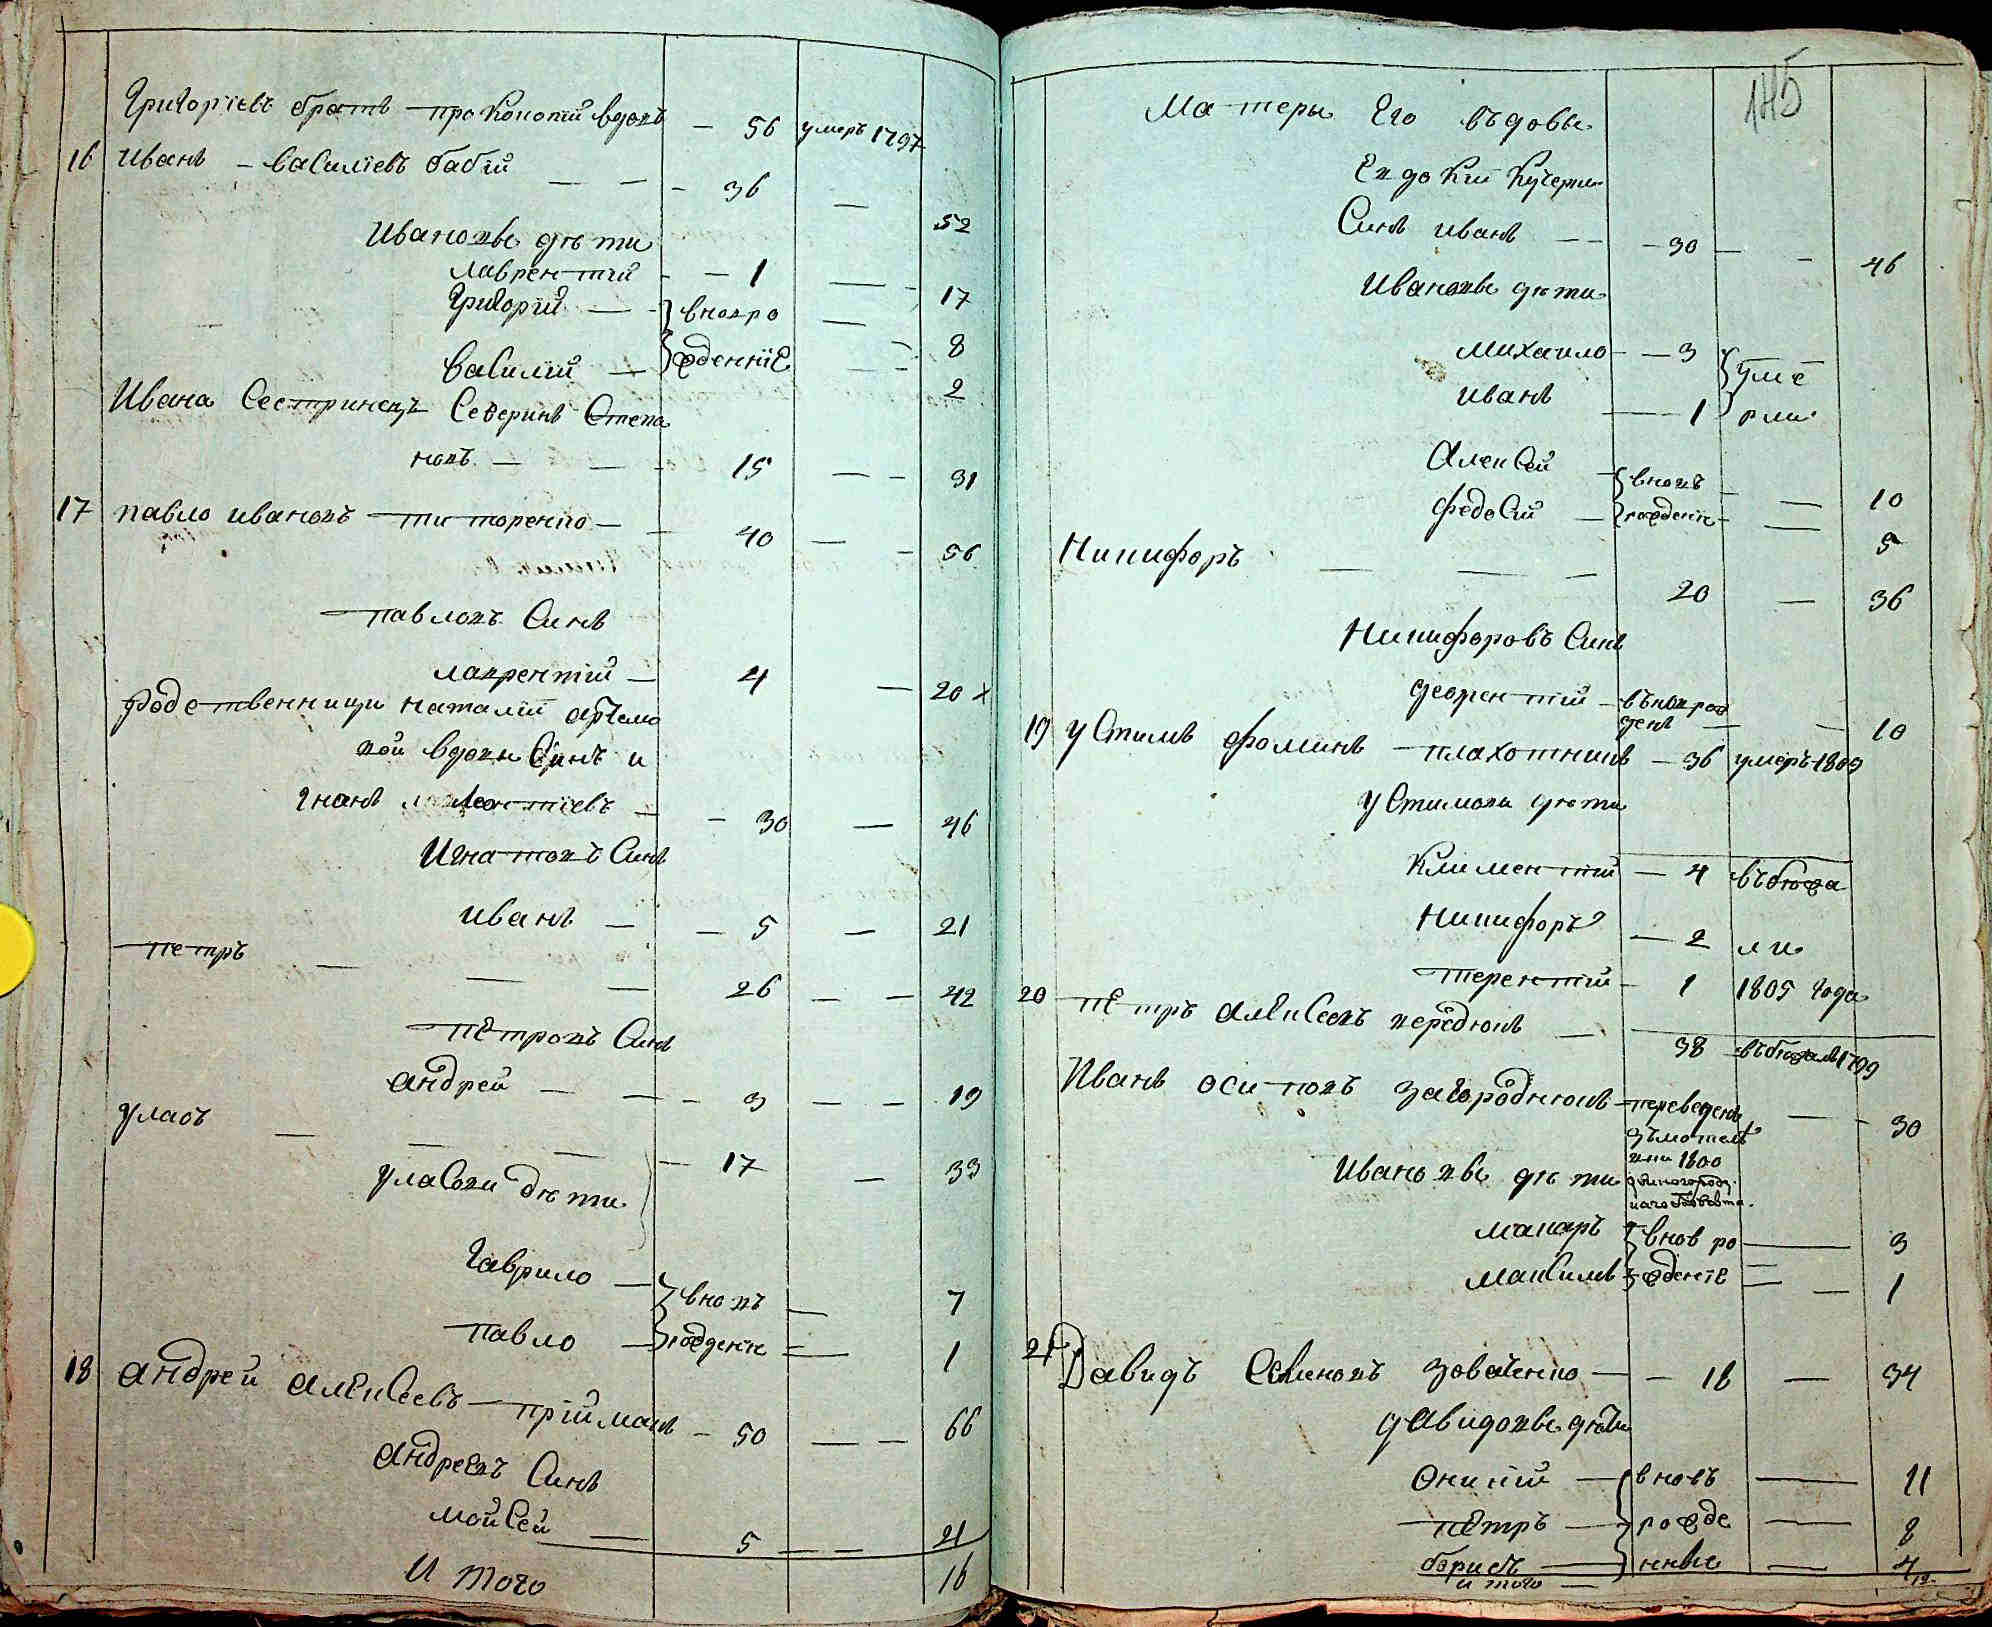 Григориевъ братъ прокопий вдовъ — 56 умеръ 1797
16 Иванъ — василиевъ бабий — — — 36 — 52
Ивановы дѣти
лаврентий — — 1 — — 17
Григорий — — вновро — 8
василий — жденние — — 2
Ивана Сестринецъ Северинъ Степа
новъ — — 15 — — 31
17 павло ивановъ титоренко — — 40 — — 56
павловъ Синъ
лаврентий — 4 — 20 х
Родственници наталии артемо
вой вдови Синъ и
гнатъ леонтиевъ — — 30 — 46
Игнатовъ Синъ
иванъ — — 5 — 21
петръ — — — 26 — — 42
пЕтровъ Синъ
андрей — — — 3 — — 19
уласъ — — — — 17 — 33
уласови дѣти
гаврило — вновъ — 7
павло — рожденни — 1
18 андрей алЕксеевъ приймакъ — 50 — — 66
андреевъ Синъ
мойсей — 5 — — 21
и того 16
145
Матеры Его въдовы
Евдокии Кучерки
Синъ иванъ — — — 30 — — 46
Ивановы дѣти
михаило — — 3 уме
иванъ — — 1 рли
алексей — вновъ — — 10
федосий — рожденн — — 5
Никифоръ — — — 20 — 36
Никифоровъ Синъ
леонтий — въновро
денъ — — 10
19 устимъ фоминъ плахотникъ — 36 умеръ 1803
устимови дѣти
климентий — 4 въбѣжа
Никифоръ — 2 ли
терентий — 1 1805 года
20 пЕтръ алЕксеевъ середюкъ — 38 въбежалъ 1799
Иванъ осиповъ загороднюкъ — переведенъ — — 30
1800
Ивановы дѣти
макаръ — внов ро — 3
максимъ — жденiе — — 1
21 Давидъ Семеновъ — — 18 — 34
давидовы дѣти
оникий — вновъ — 11
пЕтръ — рожде — 8
борисъ — нные — 4
и того — 12